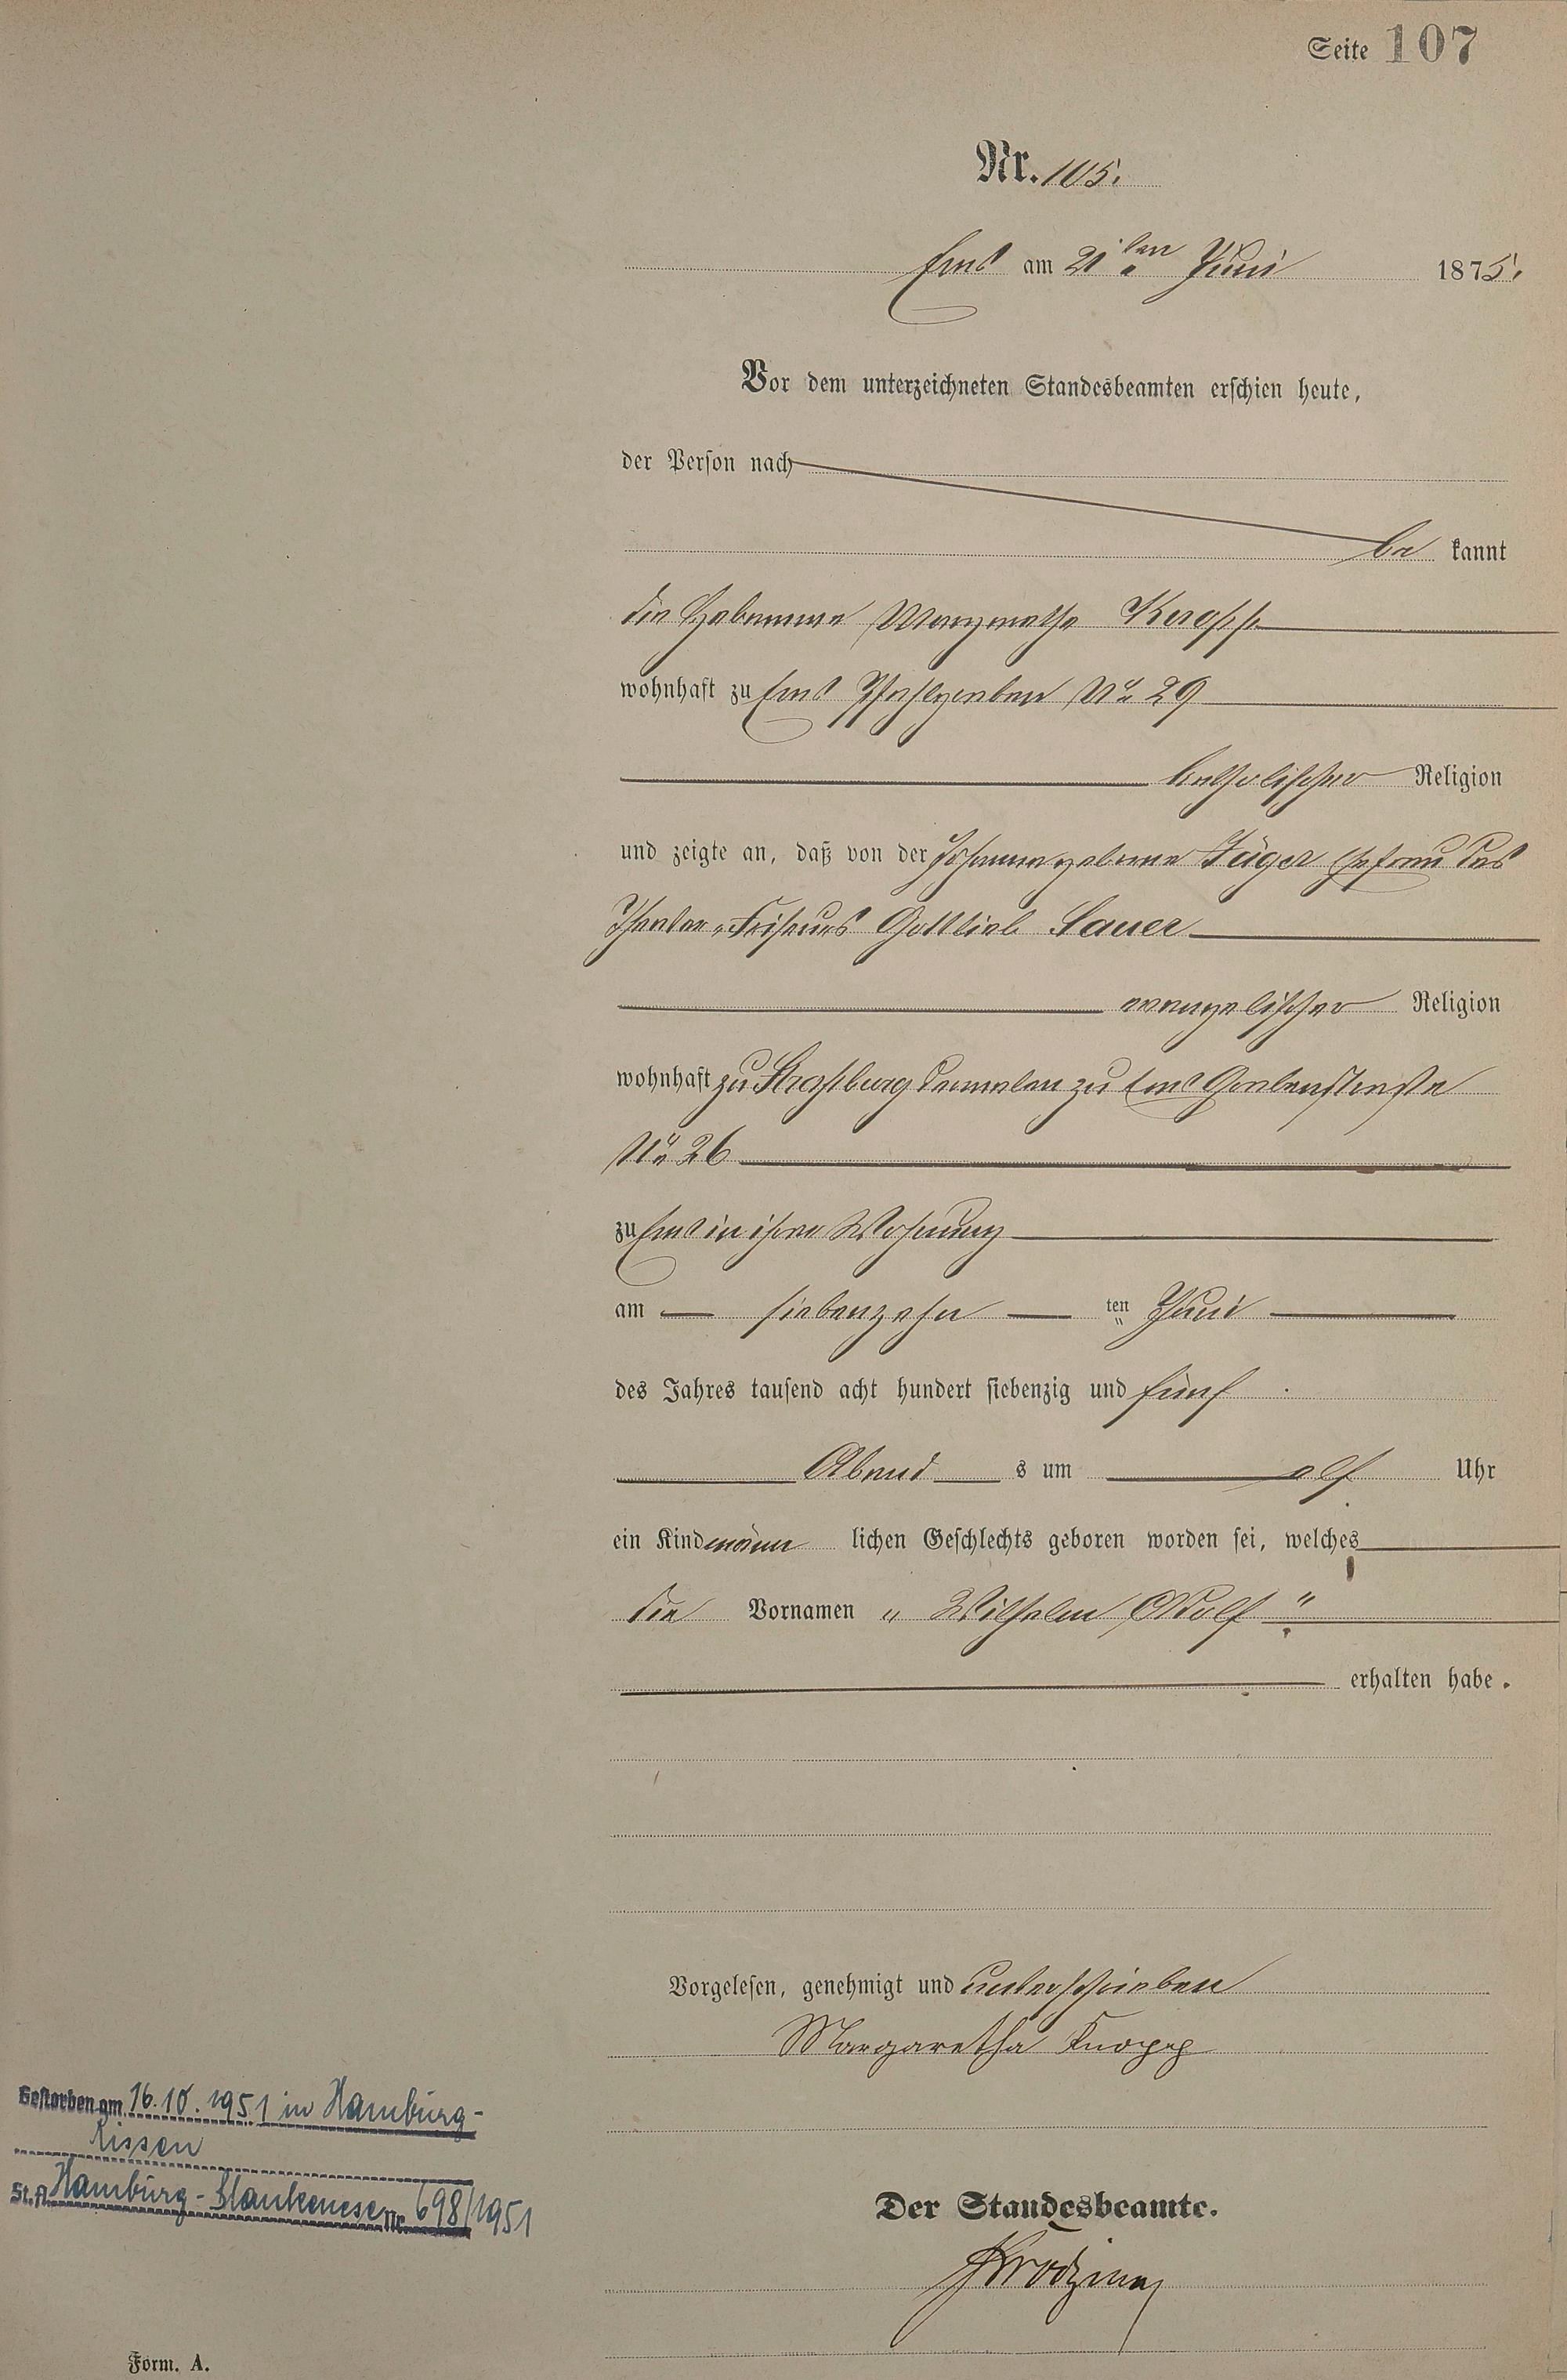 Seite 107
Nr. 105.
Ems am 21ten Juni 1875.
Vor dem unterzeichneten Standesbeamten erschien heute,
der Person nach
be kannt
die Hebamme Margaretha Knopp
wohnhaft zu Ems Pfahlgraben No 29
katholischer Religion
und zeigte an, daß von der Johanna geborene Jäger Ehefrau des
Theater-Friseurs Gottlieb Sauer
evangelischer Religion
wohnhaft zu Straßburg dermalen zu Ems Grabenstraße
No 26
zu Ems in ihrer Wohnung
am siebenzehn ten Juni
des Jahres tausend acht hundert siebenzig und fünf
Abend s um elf Uhr
ein Kind männ lichen Geschlechts geboren worden sei, welches
die Vornamen „Wilhelm Adolf"
erhalten habe.
Vorgelesen, genehmigt und unterschrieben
Margaretha Knopp
Gestorben am 16.10.1951 in Hamburg-
Rissen
St.A. Hamburg-Blankenese Nr. 698/1951
Der Standesbeamte.
Form. A.